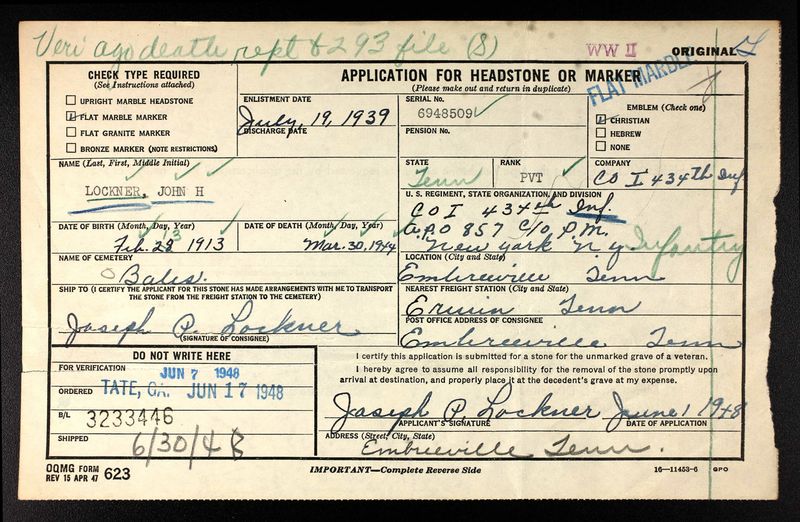 Veri ago death rept & 293 file (S)
WW II
ORIGINAL
FLAT MARBLE
CHECK TYPE REQUIRED
(See Instructions attached)
UPRIGHT MARBLE HEADSTONE
FLAT MARBLE MARKER
FLAT GRANITE MARKER
BRONZE MARKER (NOTE RESTRICTIONS)
APPLICATION FOR HEADSTONE OR MARKER
(Please make out and return in duplicate)
ENLISTMENT DATE
July, 19, 1939
DISCHARGE DATE
SERIAL No.
6948509
PENSION No.
EMBLEM (Check one)
CHRISTIAN
HEBREW
NONE
NAME (Last, First, Middle Initial)
LOCKNER, JOHN H
STATE
Tenn
RANK
PVT
COMPANY
CO I 434th Inf
U. S. REGIMENT, STATE ORGANIZATION, AND DIVISION
CO I 434th Inf.
A.P.O 857 C/o P.M.
New York N.Y. Infantry
DATE OF BIRTH (Month, Day, Year)
Feb. 23 1913
13
DATE OF DEATH (Month, Day, Year)
Mar. 30, 1944
NAME OF CEMETERY
Bales
LOCATION (City and State)
Embreeville Tenn
SHIP TO (I CERTIFY THE APPLICANT FOR THIS STONE HAS MADE ARRANGEMENTS WITH ME TO TRANSPORT
THE STONE FROM THE FREIGHT STATION TO THE CEMETERY)
Joseph P. Lockner
(SIGNATURE OF CONSIGNEE)
NEAREST FREIGHT STATION (City and State)
Erwin Tenn
POST OFFICE ADDRESS OF CONSIGNEE
Embreeville Tenn
DO NOT WRITE HERE
FOR VERIFICATION
JUN 7 1948
ORDERED
TATE, GA. JUN 17 1948
B/L
3233446
SHIPPED
6/30/48
I certify this application is submitted for a stone for the unmarked grave of a veteran.
I hereby agree to assume all responsibility for the removal of the stone promptly upon
arrival at destination, and properly place it at the decedent's grave at my expense.
Joseph P. Lockner June 1 1948
APPLICANT'S SIGNATURE
DATE OF APPLICATION
ADDRESS (Street, City, State)
Embreeville Tenn.
OQMG FORM
REV 15 APR 47 623
IMPORTANT—Complete Reverse Side
16—11453-6 GPO